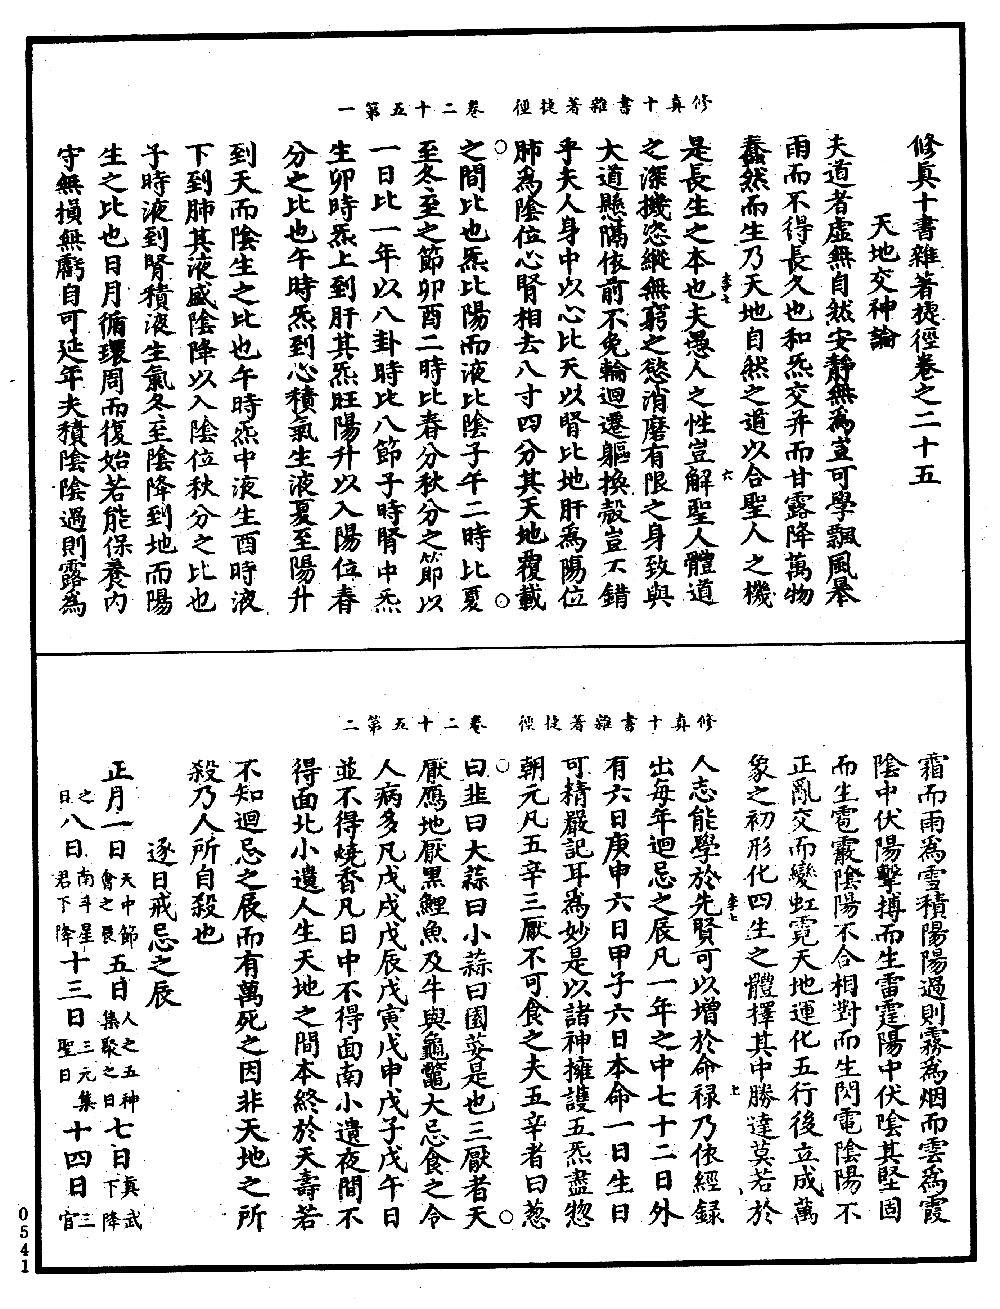 修真十書雜著捷徑　卷二十五第一
修真十書雜著捷徑卷之二十五
天地交神論
夫道者虛無自然安靜無為豈可學飄風暴
雨而不得長久也和炁交并而甘露降萬物
蠢然而生乃天地自然之道以合聖人之機
是長生之本也夫愚人之性豈解聖人體道
李七
六
之深機恣縱無窮之慾消磨有限之身致與
大道懸隔依前不免輪迴遷軀換殼豈不錯
乎夫人身中以心比天以腎比地肝為陽位
肺為陰位心腎相去八寸四分其天地覆載
之間比也炁比陽而液比陰子午二時比夏
至冬至之節卯酉二時比春分秋分之節以
一日比一年以八卦時比八節子時腎中炁
生卯時炁上到肝其炁旺陽升以入陽位春
分之比也午時炁到心積氣生液夏至陽升
到天而陰生之比也午時炁中液生酉時液
下到肺其液盛陰降以入陰位秋分之比也
子時液到腎積液生氣冬至陰降到地而陽
生之比也日月循環周而復始若能保養內
守無損無虧自可延年夫積陰陰過則露為
修真十書雜著捷徑　卷二十五第二
霜而雨為雪積陽陽過則霧為烟而雲為霞
陰中伏陽擊搏而生雷霆陽中伏陰其堅固
而生雹霰陰陽不合相對而生閃電陰陽不
正亂交而變虹霓天地運化五行後立成萬
象之初形化四生之體擇其中勝達莫若於
人志能學於先賢可以增於命祿乃依經錄
李七
七
出每年迴忌之辰凡一年之中七十二日外
有六日庚申六日甲子六日本命一日生日
可精嚴記耳為妙是以諸神擁護五炁盡惣
朝元凡五辛三厭不可食之夫五辛者曰葱
曰韭曰大蒜曰小蒜曰園荽是也三厭者天
厭鴈地厭黑鯉魚及牛與龜鼈大忌食之令
人病多凡戊戌戊辰戊寅戊申戊子戊午日
並不得燒香凡日中不得面南小遺夜間不
得面北小遺人生天地之間本終於天壽若
不知迴忌之辰而有萬死之因非天地之所
殺乃人所自殺也
逐日戒忌之辰
正月一日天中節會之辰五日人之五神集聚之日七日真武下降
之日八日南斗星君下降十三日三元集聖日十四日三官
0541